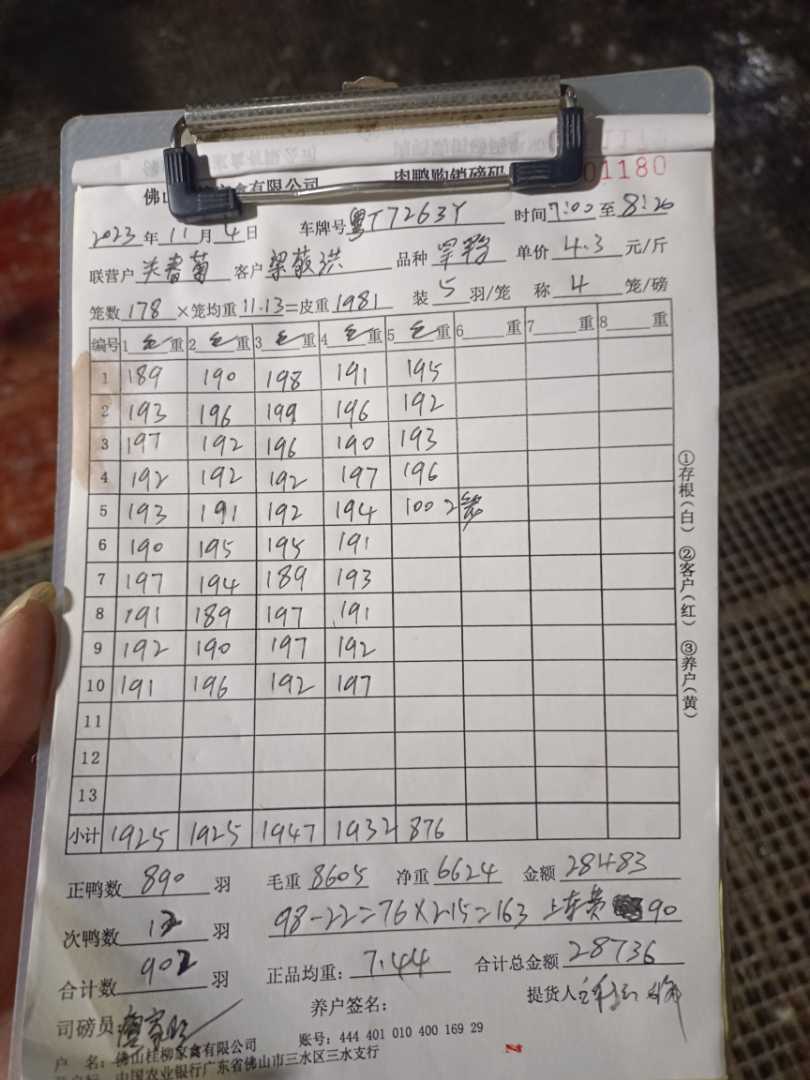 佛山 家禽有限公司 肉鸭购销磅码 01180
2023 年 11 月 4 日 车牌号 粤T7263Y 时间 7:00 至 8:20
联营户 客户 梁 洪 品种 单价 4.3 元/斤
笼数 178 ×笼均重 11.13 =皮重 1981 装 5 羽/笼 称 4 笼/磅
编号 1 毛 重 2 毛 重 3 毛 重 4 毛 重 5 毛 重 6 重 7 重 8 重
1 189 190 198 191 195
2 193 196 199 196 192
3 197 192 196 190 193
4 192 192 192 197 196
5 193 191 192 194 100 2笼
6 190 195 195 191
7 197 194 189 193
8 191 189 197 191
9 192 190 197 192
10 191 196 192 197
11
12
13
小计 1925 1925 1947 1932 876
①存根(白) ②客户(红) ③养户(黄)
正鸭数 890 羽 毛重 8605 净重 6624 金额 28483
次鸭数 12 羽 98-22=76×2.15=163 上车费 90
合计数 902 羽 正品均重: 7.44 合计总金额 28736
养户签名: 提货人
司磅员
户 名: 佛山桂柳家禽有限公司 账号: 444 401 010 400 169 29
中国农业银行广东省佛山市三水区三水支行